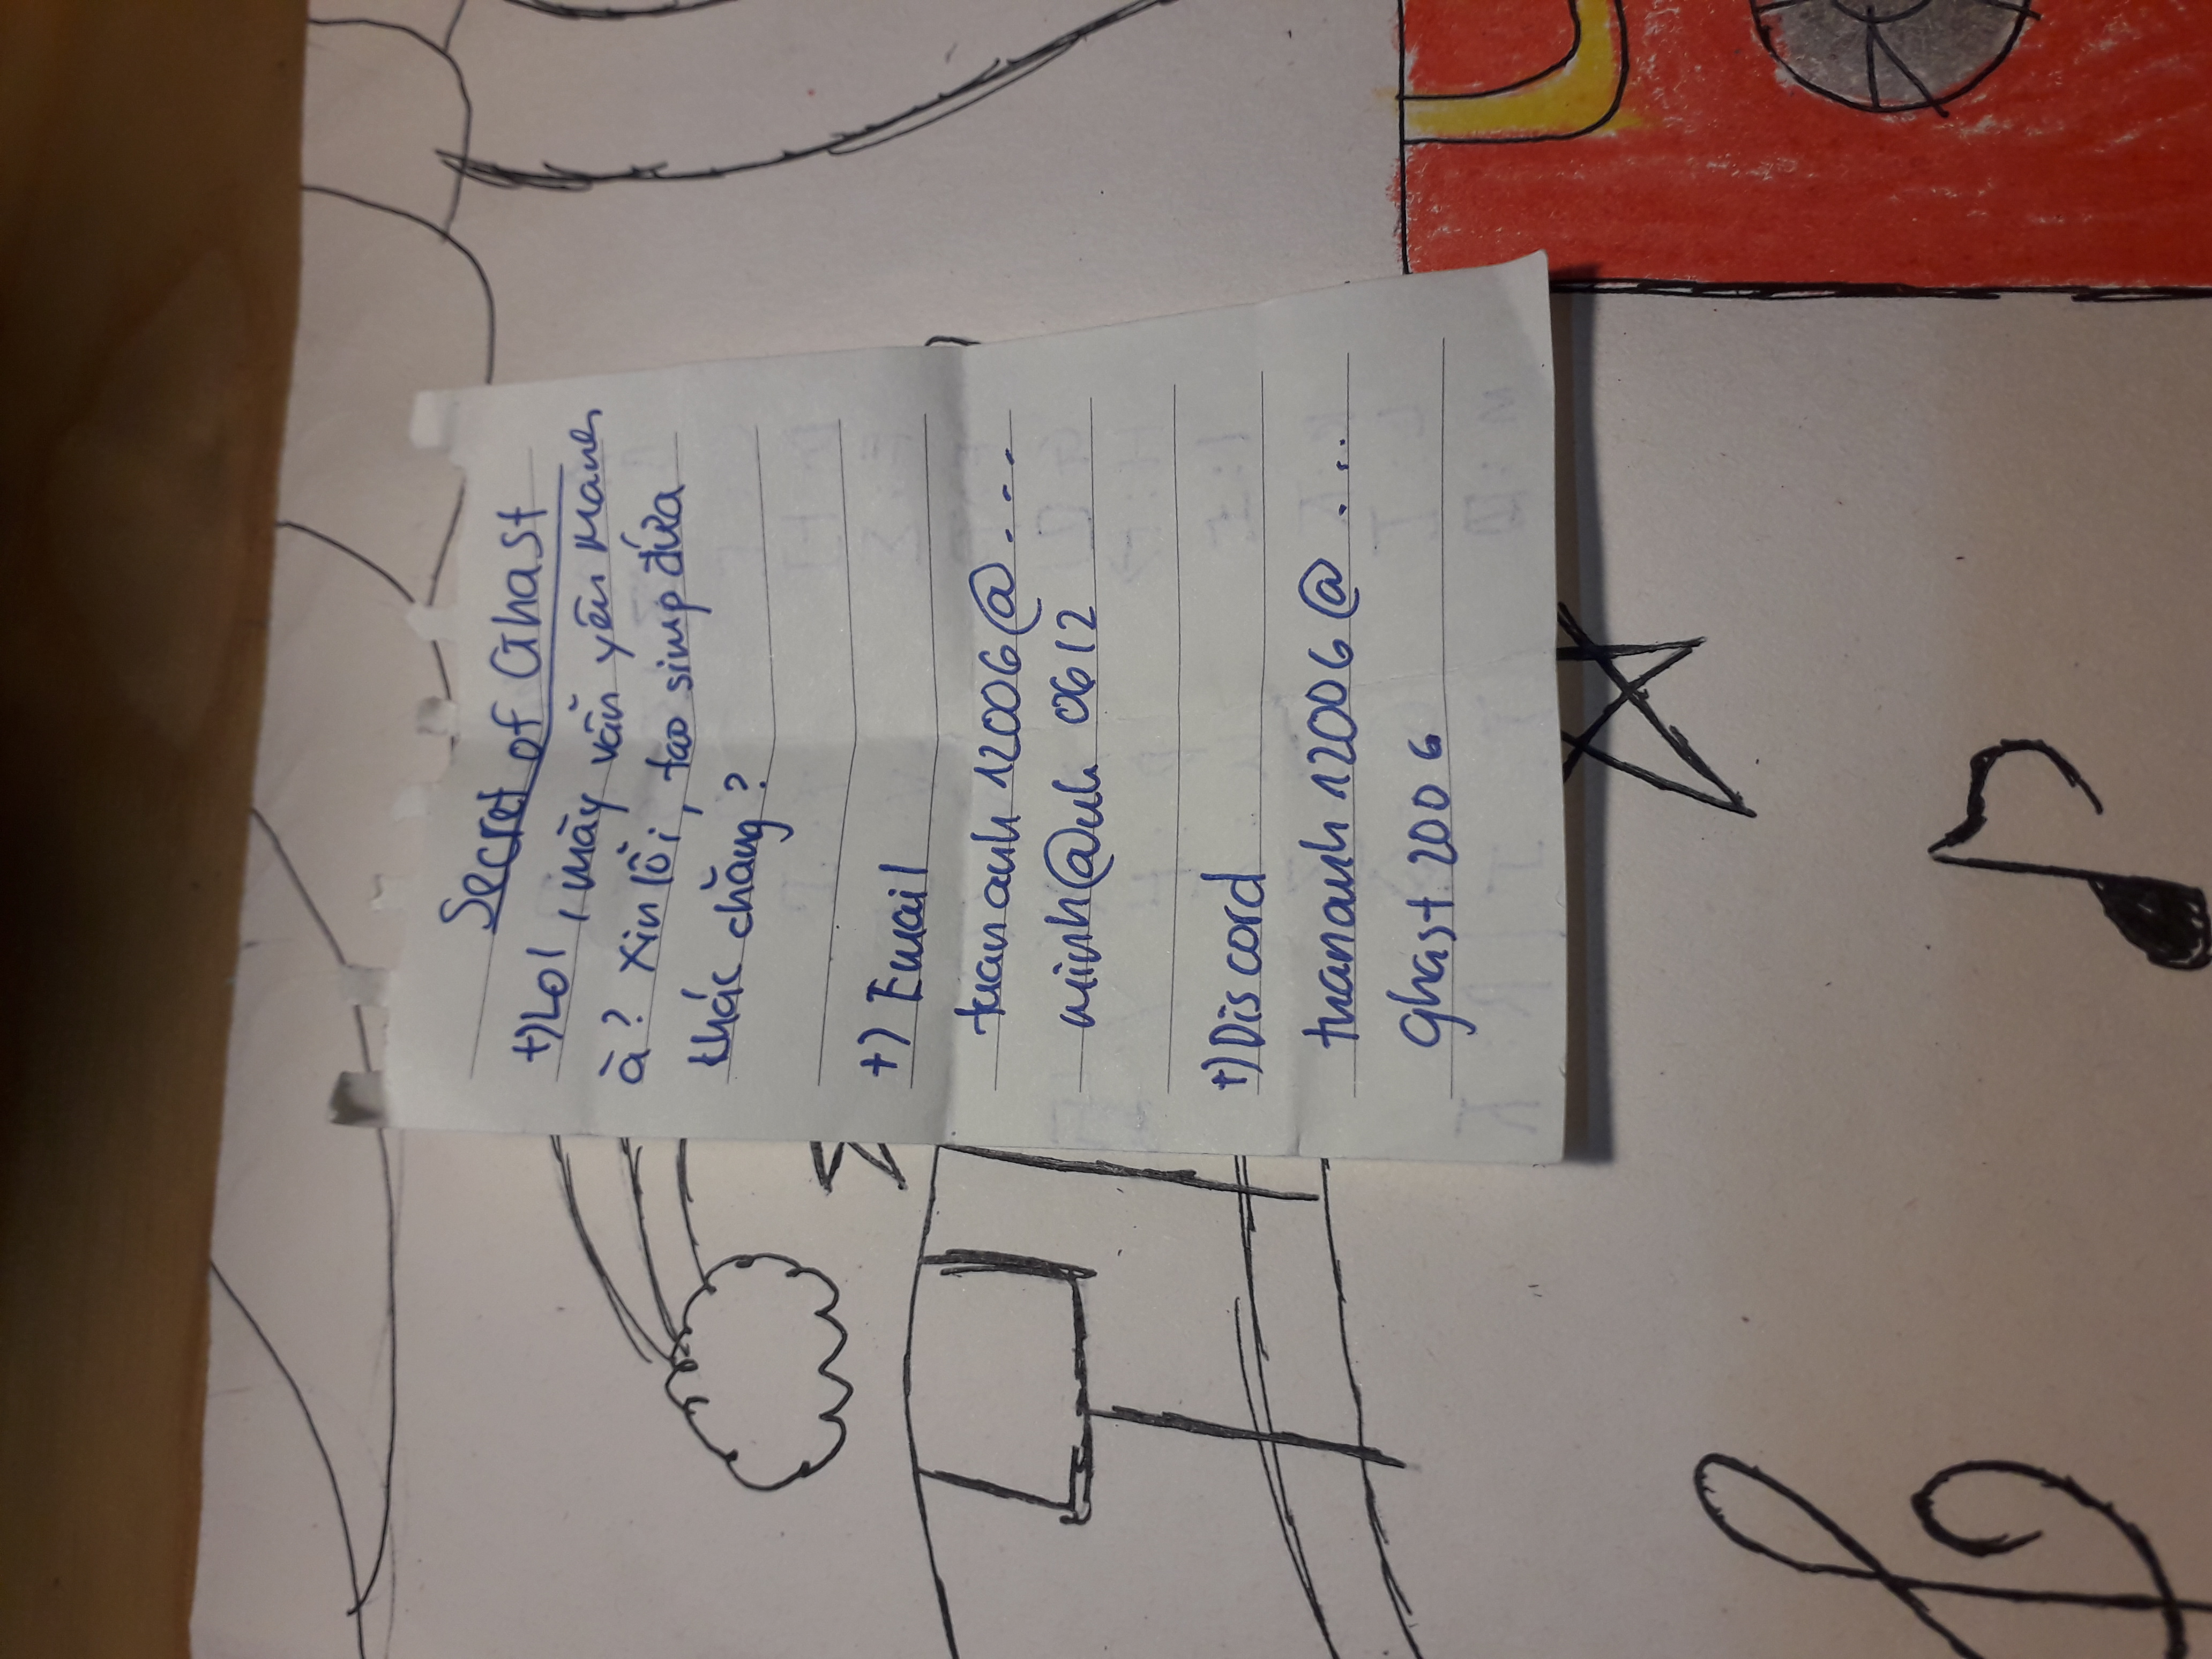 Secret of Ghast
+) Lol, mày vẫn yêu Manh
à? Xin lỗi, tao simp đứa
khác chăng?
+) Email
tuananh12006@...
minh@nh 0612
+) Discord
tuananh12006@...
ghast 2006